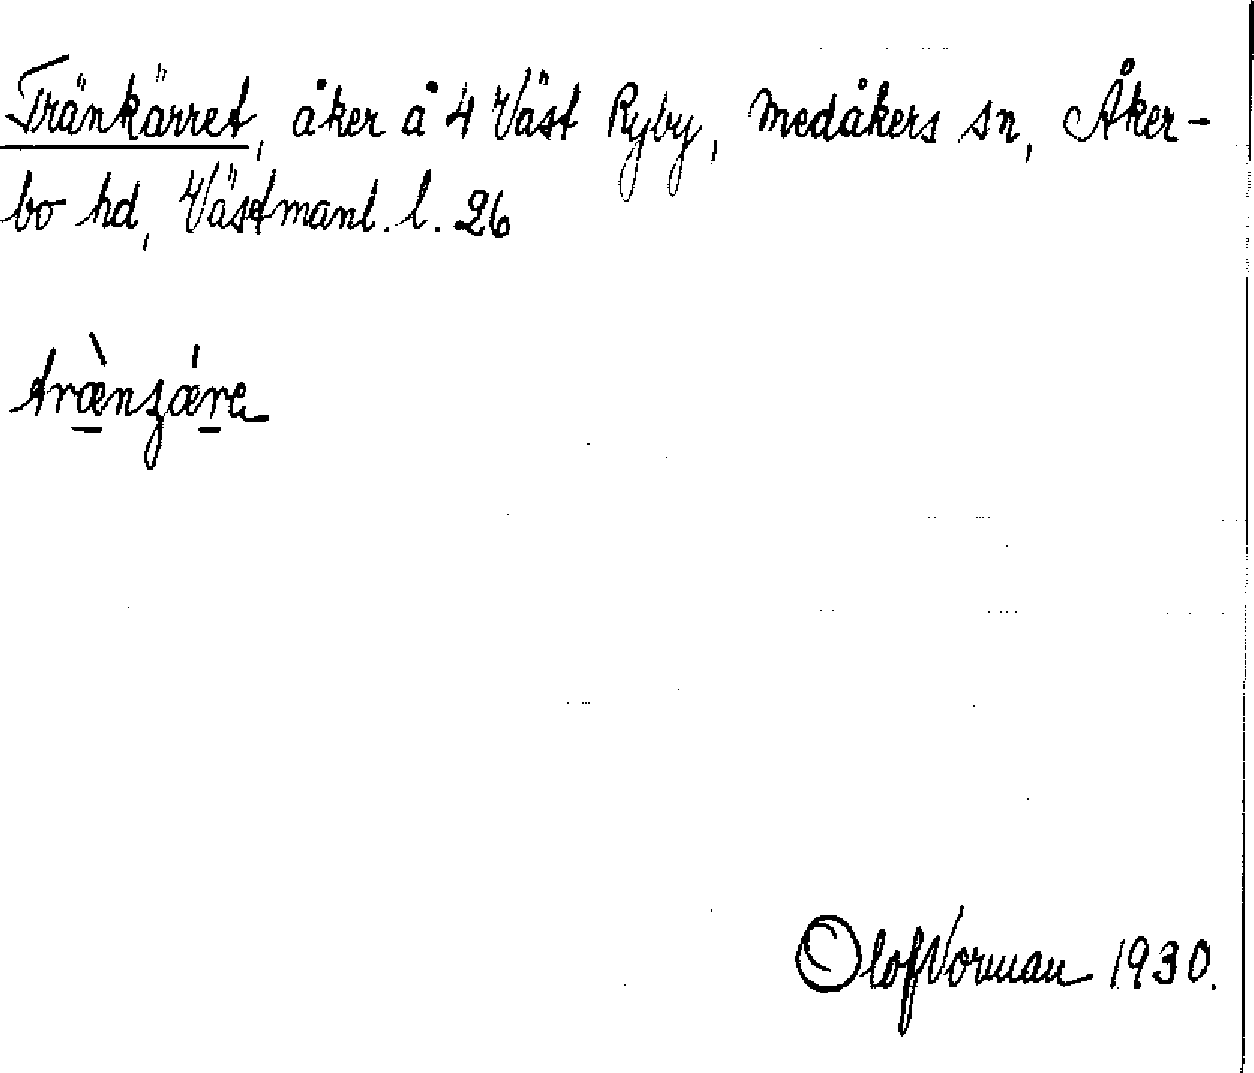 Tränkärret, åker å 4 Väst Ryby, Medåkers sn, Åker-
bo hd, Västmanl. l. 26
træ̀nʒǽre
Olof Vorman 1930.